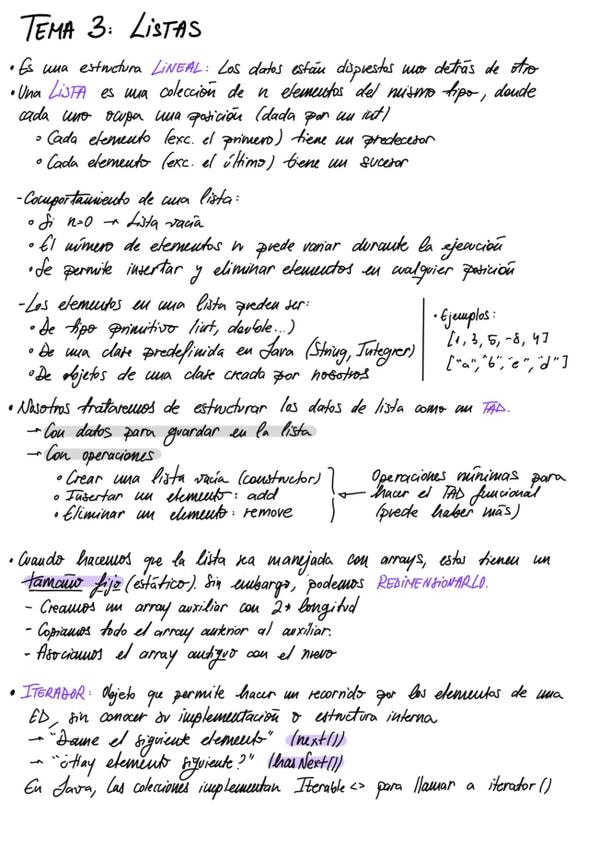 TEMA 3: LISTAS
• Es una estructura LINEAL: Los datos están dispuestos uno detrás de otro
• Una LISTA es una colección de n elementos del mismo tipo, donde
cada uno ocupa una posición (dada por un int)
◦ Cada elemento (exc. el primero) tiene un predecesor
◦ Cada elemento (exc. el último) tiene un sucesor
- Comportamiento de una lista:
◦ Si n=0 → Lista vacía
◦ El número de elementos n puede variar durante la ejecución
◦ Se permite insertar y eliminar elementos en cualquier posición
- Los elementos en una lista pueden ser:
◦ De tipo primitivo (int, double...)
◦ De una clase predefinida en Java (String, Integer)
◦ De objetos de una clase creada por nosotros
• Ejemplos:
[1, 3, 5, -8, 4]
["a", "b", "e", "d"]
• Nosotros trataremos de estructurar los datos de lista como un TAD.
→ Con datos para guardar en la lista
→ Con operaciones
◦ Crear una lista vacía (constructor)
◦ Insertar un elemento: add
◦ Eliminar un elemento: remove
Operaciones mínimas para
hacer el TAD funcional
(puede haber más)
• Cuando hacemos que la lista sea manejada con arrays, estos tienen un
tamaño fijo (estático). Sin embargo, podemos REDIMENSIONARLO.
- Creamos un array auxiliar con 2* longitud
- Copiamos todo el array anterior al auxiliar.
- Asociamos el array antiguo con el nuevo
• ITERADOR: Objeto que permite hacer un recorrido por los elementos de una
ED, sin conocer su implementación o estructura interna
→ "Dame el siguiente elemento" (next())
→ "¿Hay elemento siguiente?" (hasNext())
En Java, las colecciones implementan Iterable<> para llamar a iterator()